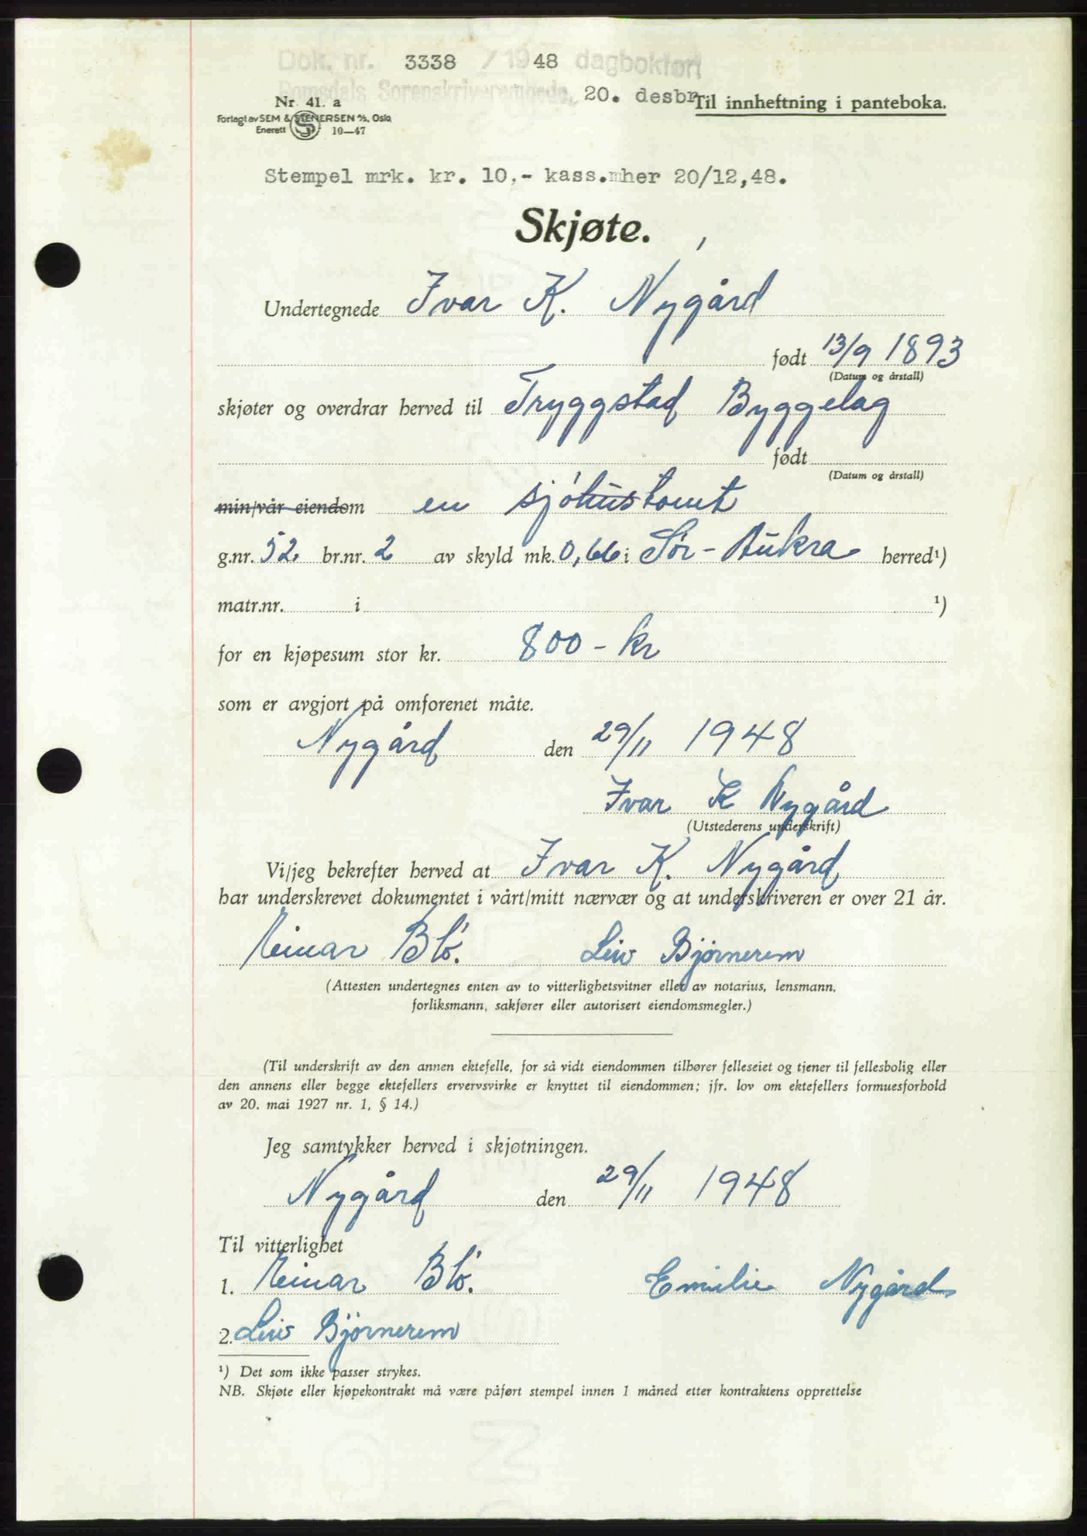 Dok. nr. 3338 / 1948 dagbokført
Romsdals Sorenskriverembede, 20. desbr.
Nr. 41. a
Til innheftning i panteboka.
Forlagt av SEM & STENERSEN A/S, Oslo
Enerett 10—47
Stempel mrk. kr. 10,- kass. her 20/12,48.
Skjøte.
Undertegnede Ivar K. Nygård
født 13/9 1893
(Datum og årstall)
skjøter og overdrar herved til Tryggstad Byggelag
født
(Datum og årstall)
min/vår eiendom en sjøhustomt
g.nr. 52 br.nr. 2 av skyld mk. 0,66 i Sør-Aukra herred¹)
matr.nr. i ¹)
for en kjøpesum stor kr. 800 - kr
som er avgjort på omforenet måte.
Nygård den 29/11 1948
Ivar K Nygård
(Utstederens underskrift)
Vi/jeg bekrefter herved at Ivar K. Nygård
har underskrevet dokumentet i vårt/mitt nærvær og at underskriveren er over 21 år.
Einar Blø. Leiv Bjørnerem
(Attesten undertegnes enten av to vitterlighetsvitner eller av notarius, lensmann,
forliksmann, sakfører eller autorisert eiendomsmegler.)
(Til underskrift av den annen ektefelle, for så vidt eiendommen tilhører felleseiet og tjener til fellesbolig eller
den annens eller begge ektefellers ervervsvirke er knyttet til eiendommen; jfr. lov om ektefellers formuesforhold
av 20. mai 1927 nr. 1, § 14.)
Jeg samtykker herved i skjøtningen.
Nygård den 29/11 1948
Til vitterlighet
1. Einar Blø. Emilie Nygård
2. Leiv Bjørnerem
¹) Det som ikke passer strykes.
NB. Skjøte eller kjøpekontrakt må være påført stempel innen 1 måned etter kontraktens opprettelse